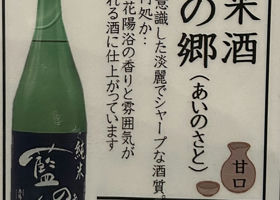 米酒
の郷
(あいのさと)
意識した淡麗でシャープな酒質。
何処か…
花陽浴の香りと雰囲気が
れる酒に仕上がっています
甘口
純米
藍の